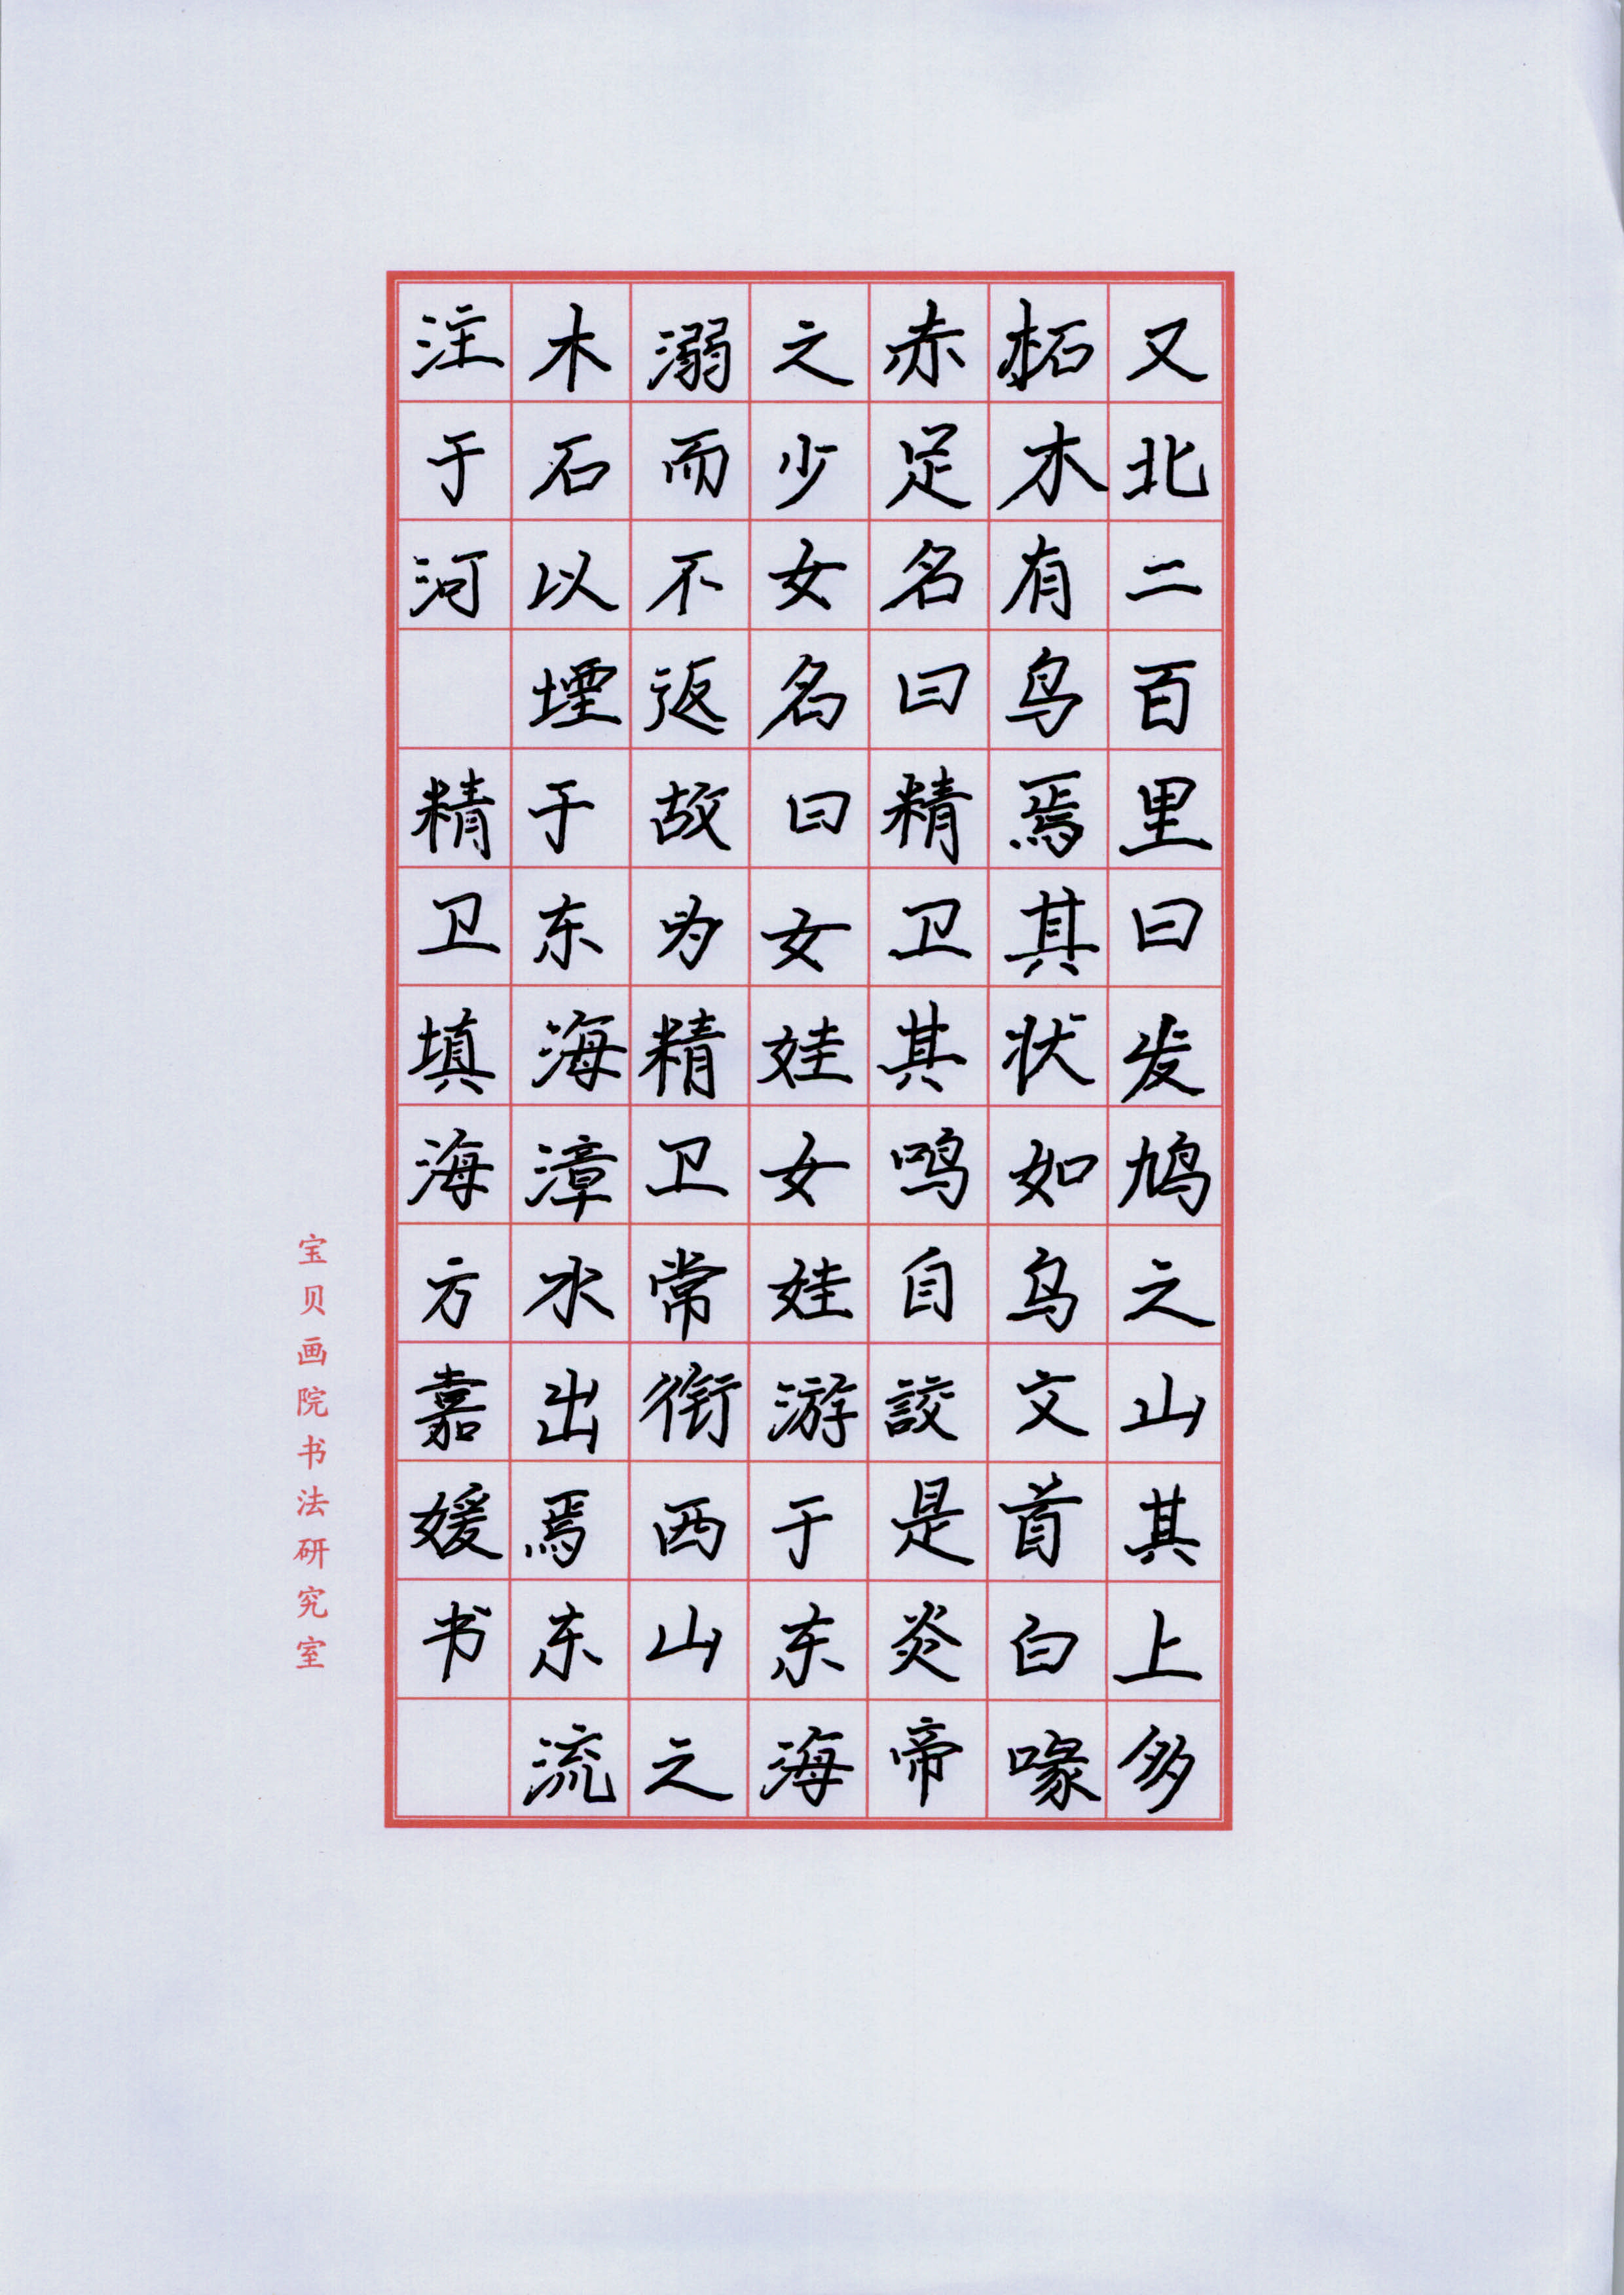 又北二百里曰发鸠之山其上多
柘木有鸟焉其状如乌文首白喙
赤足名曰精卫其鸣自詨是炎帝
之少女名曰女娃女娃游于东海
溺而不返故为精卫常衔西山之
木石以堙于东海漳水出焉东流
注于河 精卫填海方嘉媛书
宝贝画院书法研究室